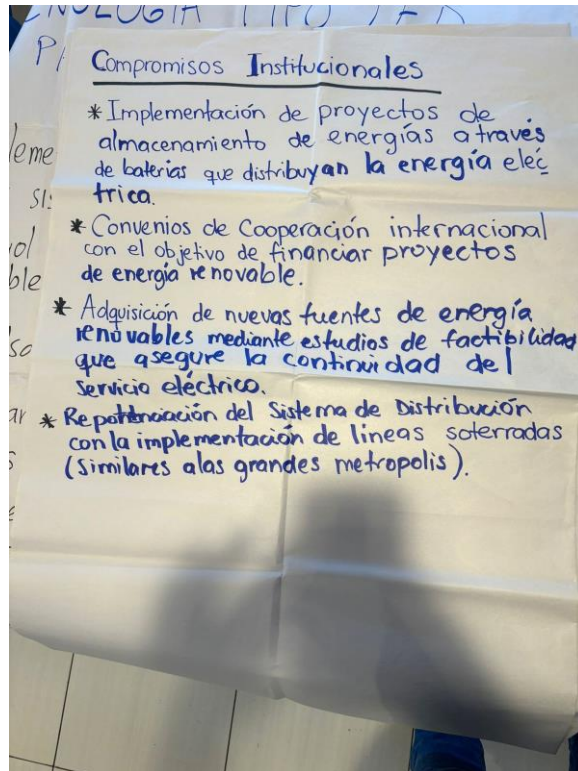 Compromisos Institucionales
* Implementación de proyectos de
almacenamiento de energías através
de baterias que distribuyan la energía eléc
trica.
* Convenios de Cooperación internacional
con el objetivo de financiar proyectos
de energía renovable.
* Adquisición de nuevas fuentes de energía
renovables mediante estudios de factibilidad
que asegure la continuidad del
servicio eléctrico.
* Repotenciación del Sistema de Distribución
con la implementación de lineas soterradas
(similares alas grandes metropolis).